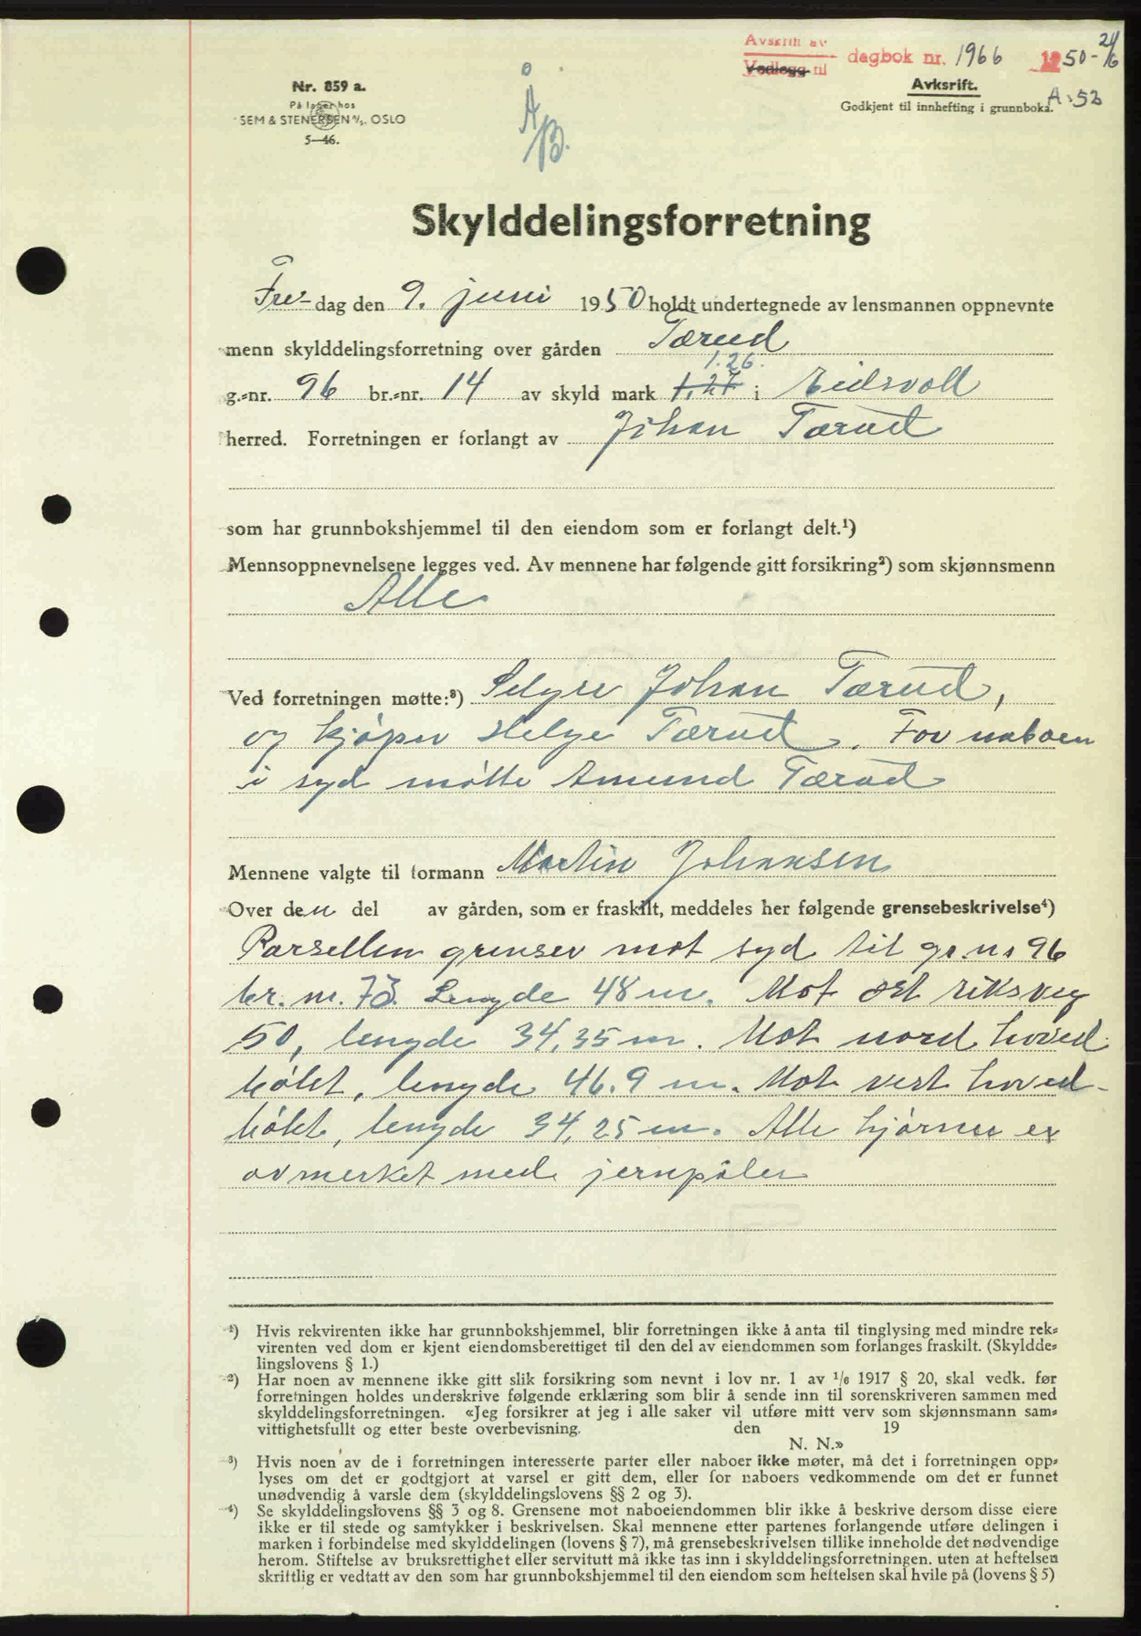 Avskrift av
Vedlegg til dagbok nr. 1966 1950-21/6
Nr. 859 a.
På lager hos
SEM & STENERSEN A/S. OSLO
5-46.
Å
B.
Avksrift.
A.53
Godkjent til innhefting i grunnboka.
Skylddelingsforretning
Fre-dag den 9. juni 1950 holdt undertegnede av lensmannen oppnevnte
menn skylddelingsforretning over gården Tærud
1.26.
g.-nr. 96 br.-nr. 14 av skyld mark 1,27 i Eidsvoll
herred. Forretningen er forlangt av Johan Tærud
som har grunnbokshjemmel til den eiendom som er forlangt delt.¹)
Mennsoppnevnelsene legges ved. Av mennene har følgende gitt forsikring²) som skjønnsmenn
Alle
Ved forretningen møtte:³) Selgre Johan Tærud,
og kjøper Helge Tærud. For naboen
i syd møtte Amund Tærud
Mennene valgte til formann Martin Johansen
Over den del av gården, som er fraskilt, meddeles her følgende grensebeskrivelse⁴)
Parsellen grenser mot syd til gr. nr 96
br. nr. 73. Lengde 48 m. Mot øst riksveg
50, lengde 34,35 m. Mot nord hoved
bølet, lengde 46.9 m. Mot vest hoved-
bølet, lengde 34,25 m. Alle hjørner er
avmerket med jernpåler
¹) Hvis rekvirenten ikke har grunnbokshjemmel, blir forretningen ikke å anta til tinglysing med mindre rek-
virenten ved dom er kjent eiendomsberettiget til den del av eiendommen som forlanges fraskilt. (Skyldde-
lingslovens § 1.)
²) Har noen av mennene ikke gitt slik forsikring som nevnt i lov nr. 1 av 1/6 1917 § 20, skal vedk. før
forretningen holdes underskrive følgende erklæring som blir å sende inn til sorenskriveren sammen med
skylddelingsforretningen. «Jeg forsikrer at jeg i alle saker vil utføre mitt verv som skjønnsmann sam-
vittighetsfullt og etter beste overbevisning. den 19
N. N.»
³) Hvis noen av de i forretningen interesserte parter eller naboer ikke møter, må det i forretningen opp-
lyses om det er godtgjort at varsel er gitt dem, eller for naboers vedkommende om det er funnet
unødvendig å varsle dem (skylddelingslovens §§ 2 og 3).
⁴) Se skylddelingslovens §§ 3 og 8. Grensene mot naboeiendommen blir ikke å beskrive dersom disse eiere
ikke er til stede og samtykker i beskrivelsen. Skal mennene etter partenes forlangende utføre delingen i
marken i forbindelse med skylddelingen (lovens § 7), må grensebeskrivelsen tillike inneholde det nødvendige
herom. Stiftelse av bruksrettighet eller servitutt må ikke tas inn i skylddelingsforretningen. uten at heftelsen
skriftlig er vedtatt av den som har grunnbokshjemmel til den eiendom som heftelsen skal hvile på (lovens § 5)